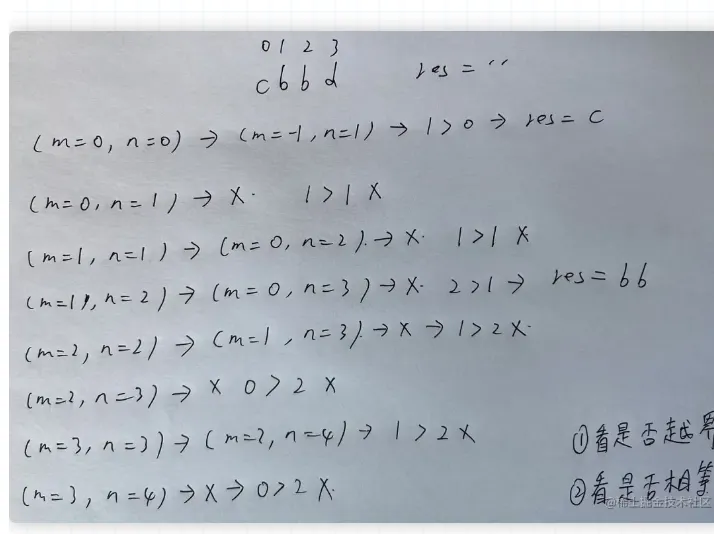 0 1 2 3
c b b d    res = ''
(m=0, n=0) → (m=-1, n=1) → 1 > 0 → res = c
(m=0, n=1) → X. 1 > 1 X
(m=1, n=1) → (m=0, n=2). → X. 1 > 1 X
(m=1), n=2) → (m=0, n=3) → X. 2 > 1 → res = bb
(m=2, n=2) → (m=1, n=3). → X → 1 > 2 X.
(m=2, n=3) → X 0 > 2 X
(m=3, n=3) → (m=2, n=4) → 1 > 2 X
①看是否越界
(m=3, n=4) → X → 0 > 2 X.
②看是否相等
@稀土掘金技术社区